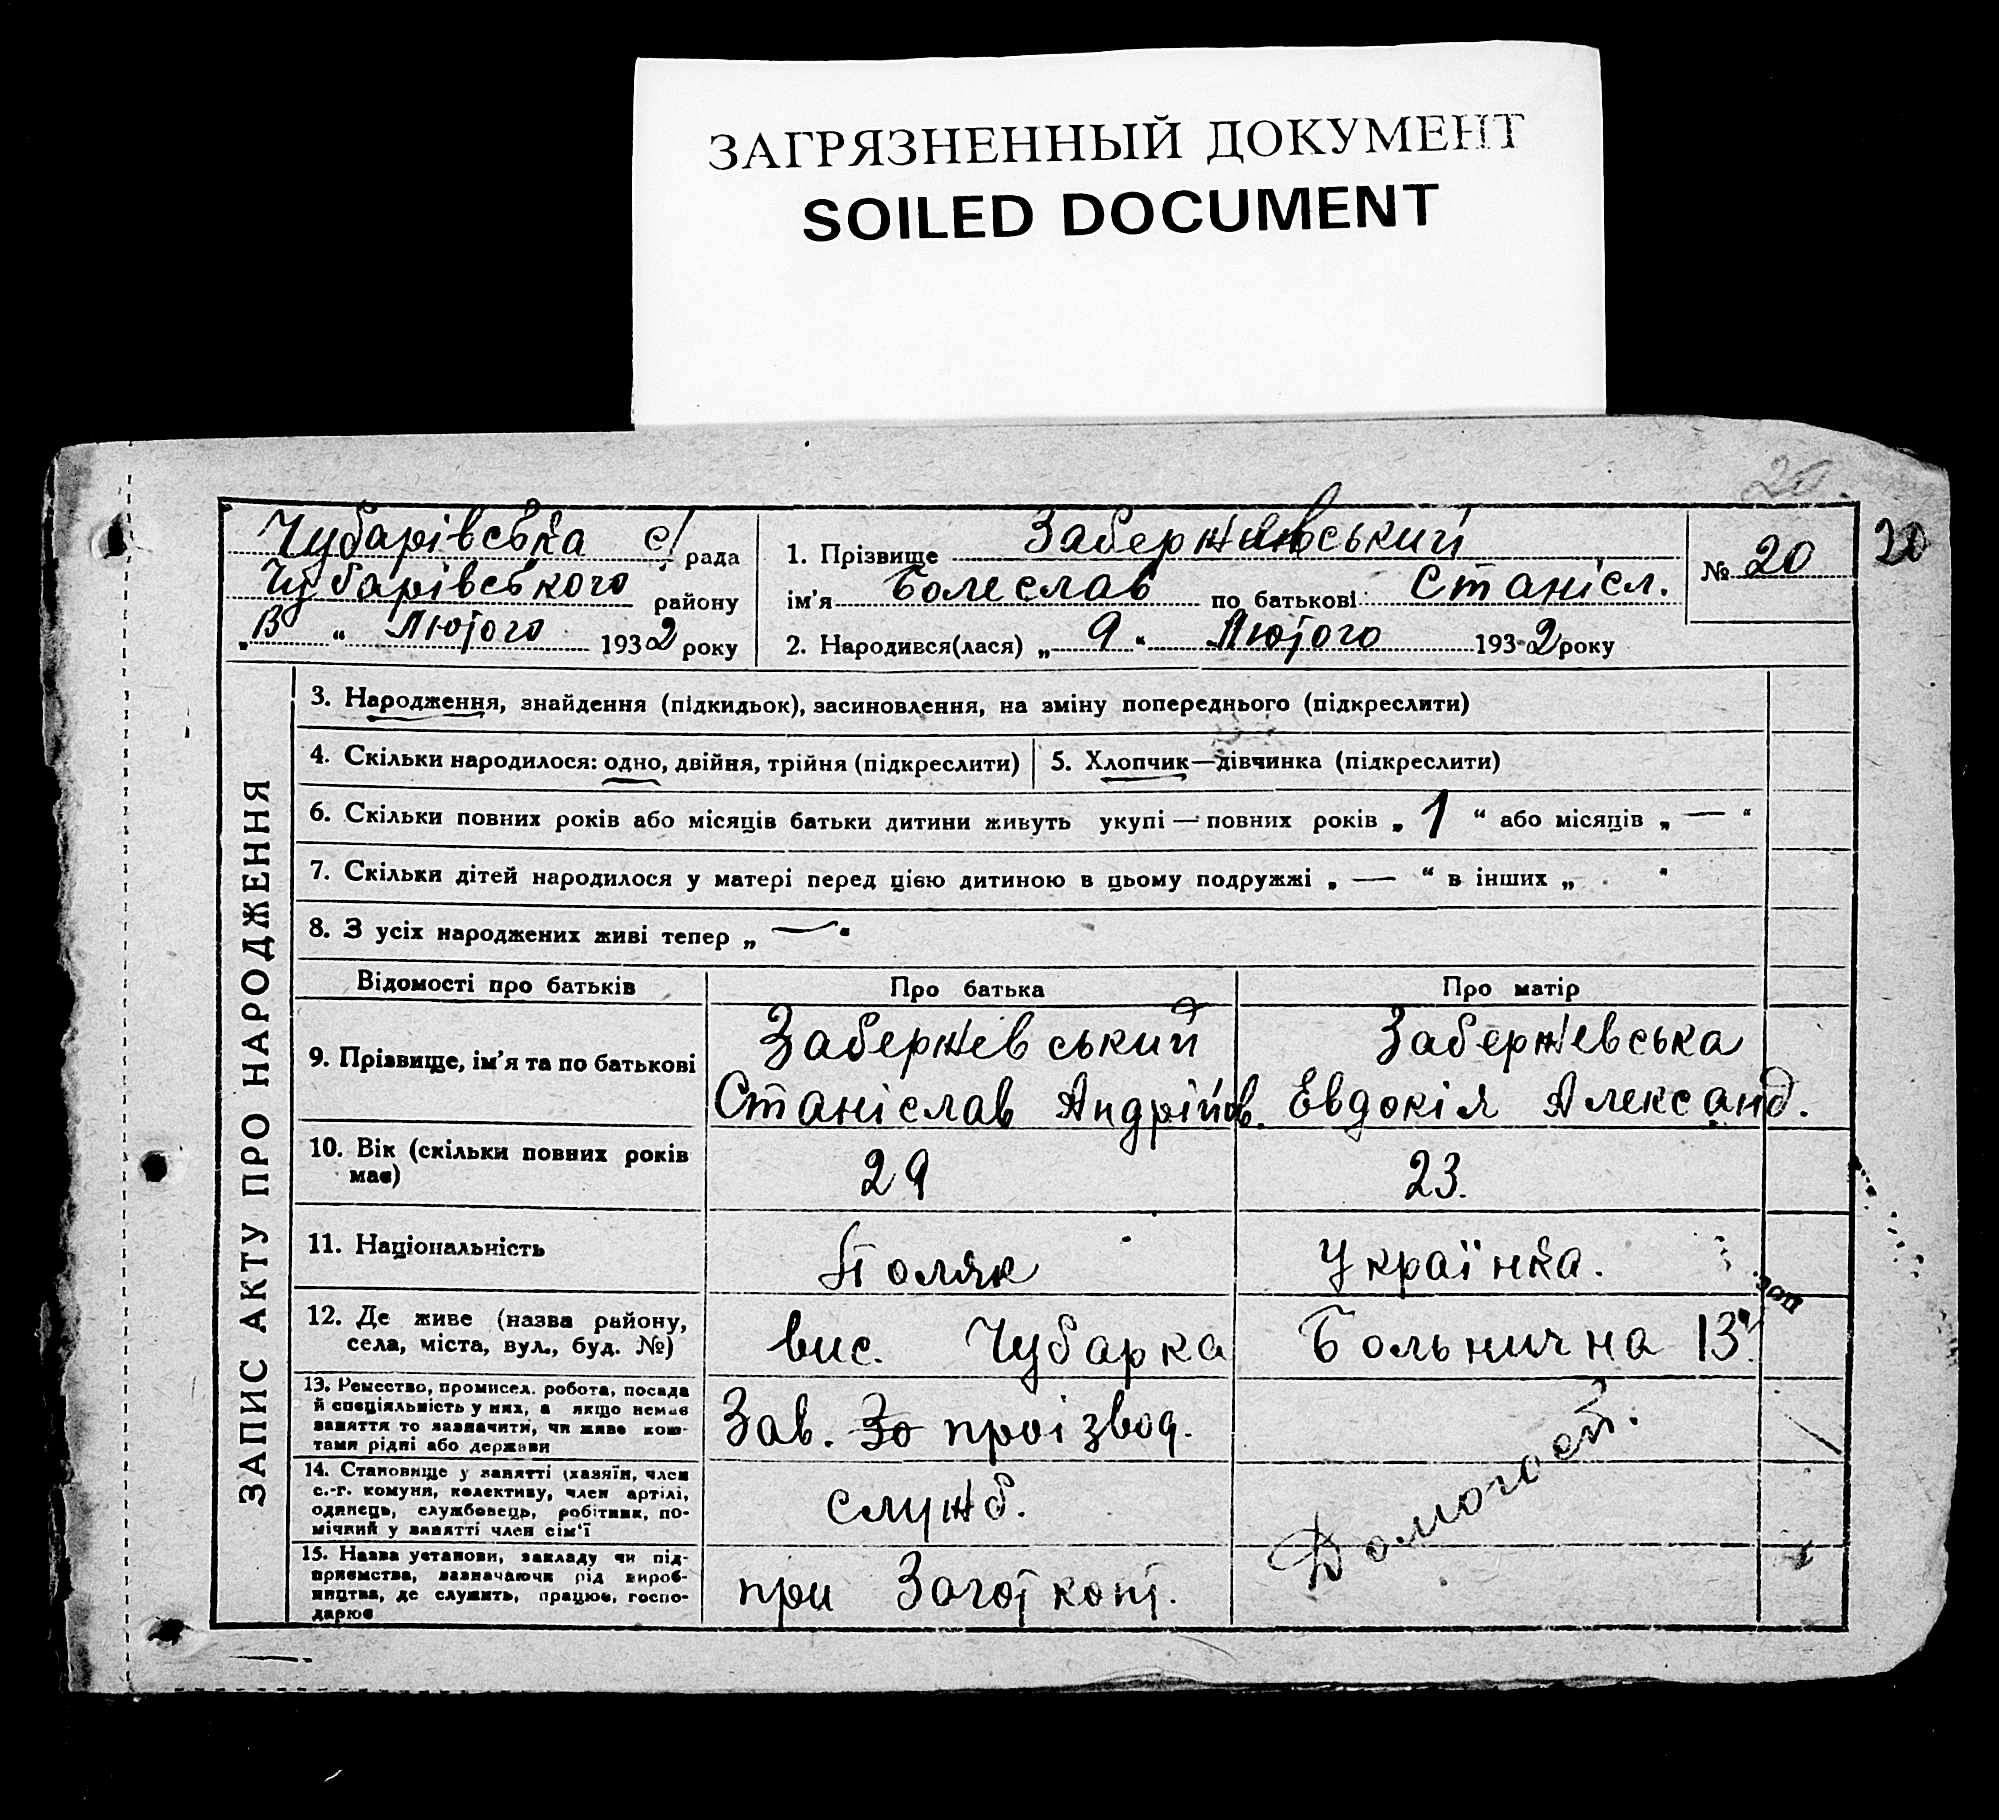 ЗАГРЯЗНЕННЫЙ ДОКУМЕНТ
SOILED DOCUMENT
20.
Чубарівська с/рада
Чубарівського району
"13" Лютого 1932 року
1. Прізвище
ім'я Болеслав по батькові Станісл.
2. Народився(лася) „9" Лютого 1932 року
№ 20
20
ЗАПИС АКТУ ПРО НАРОДЖЕННЯ
3. Народження, знайдення (підкидьок), засиновлення, на зміну попереднього (підкреслити)
4. Скільки народилося: одно, двійня, трійня (підкреслити)
5. Хлопчик—дівчинка (підкреслити)
6. Скільки повних років або місяців батьки дитини живуть укупі — повних років „1“ або місяців „—“
7. Скільки дітей народилося у матері перед цією дитиною в цьому подружжі „—“ в інших „ “
8. З усіх народжених живі тепер „—“
Відомості про батьків
Про батька
Про матір
9. Прізвище, ім'я та по батькові
Забержевський
Станіслав Андрійов.
Забержевська
Евдокія Александ.
10. Вік (скільки повних років
має)
29
23.
11. Національність
Поляк
Українка.
12. Де живе (назва району,
села, міста, вул., буд. №)
вис. Чубарка
Больнична 13
13. Ремество, промисел, робота, посада
й спеціяльність у них, а якщо немає
заняття то зазначити, чи живе кош-
тами рідні або держави
Зав. За проізвод.
14. Становище у занятті (хазяїн, член
с.-г. комуни, колективу, член артілі,
одинець, службовець, робітник, по-
мічний у занятті член сім'ї
служб.
Домогосп.
15. Назва установи, закладу чи під-
приємства, зазначаючи рід вироб-
ництва, де служить, працює, госпо-
дарює
при Заготконт.